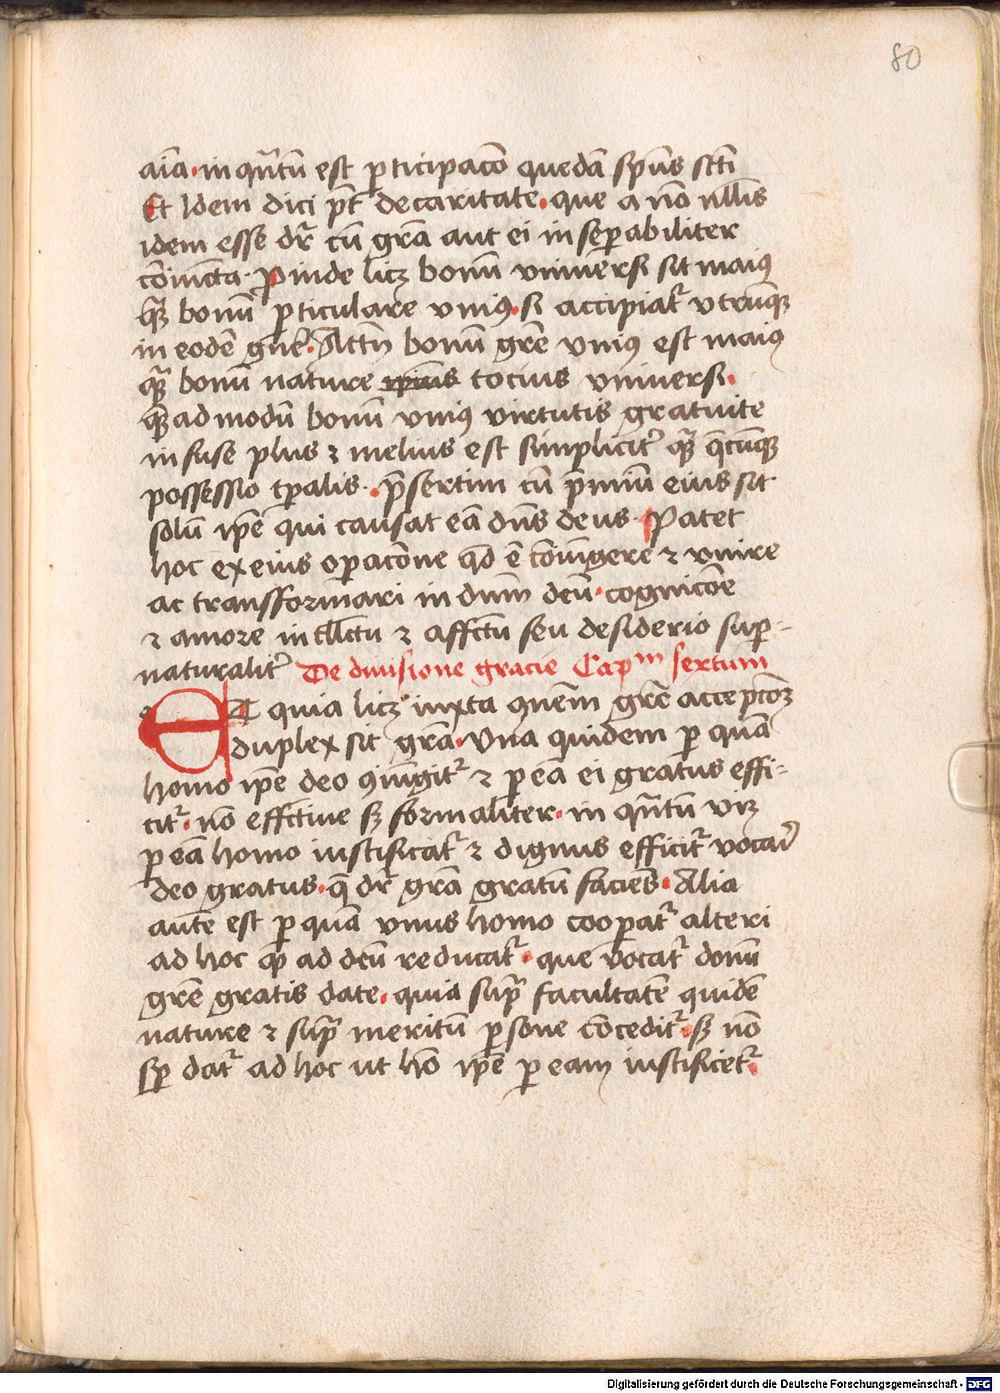 80
aīa · in qn̄tū est ꝑticipacō quedā sp̄us sct̄i
Et Idem dici pt̄ de caritate · que a nōnull̄is
idem esse dr̄ cū grā aut ei inseꝑabiliter
cōiūcta · Proinde licꝫ bonū vniuersi sit maiꝰ
qꝫ bonū ꝑticulare vniꝰ · si accipiat᷑ vtrūqꝫ
in eodē gn̄e᷑ · Attn̄ bonū grē vniꝰ est maiꝰ
quā bonū nature tocius vniuersi ·
quēadmodū bonū vniꝰ virtutis gratuite
infuse plus ⁊ melius est simplicit᷑ quā qēcūqꝫ
possessio tꝑalis · p̄sertim cū p̄miū eius sit
solū ip̄e qui causat eā dn̄s deus · Patet
hoc ex eius oꝑacōne qd̄ ē cōiūgere ⁊ vnire
ac transformari in dn̄m deū · cognicōe
⁊ amore intll̄ctu ⁊ affc̄tu seu desiderio suꝑ-
naturalit᷑ De diuisione gracie Capᵐ sextum
ET quia licꝫ iuxta ꝯuēm grē accepcōꝫ
duplex sit grā · Vna quidem ꝑ quā
homo ip̄e deo ꝯiūgit᷑ ⁊ ꝑ eā ei gratus effi-
cit᷑ · nō effc̄tiue sꝫ formaliter · in qn̄tū viꝫ
ꝑ eā homo iustificat᷑ ⁊ dignus efficit᷑ vocari
deo gratus · q̄ dr̄ grā gratū faciēs · Alia
autē est ꝑ quā vnus homo cooꝑat᷑ alteri
ad hoc ꝙ ad deū reducat᷑ · que vocat᷑ donū
grē gratis date · quia supᷓ facultatē quidē
nature ⁊ supᷓ meritū ꝑsone cōcedit᷑ · sꝫ nō
sꝑ dat᷑ ad hoc ut hō ip̄e ꝑ eam iustificet᷑ ·
Digitalisierung gefördert durch die Deutsche Forschungsgemeinschaft - DFG